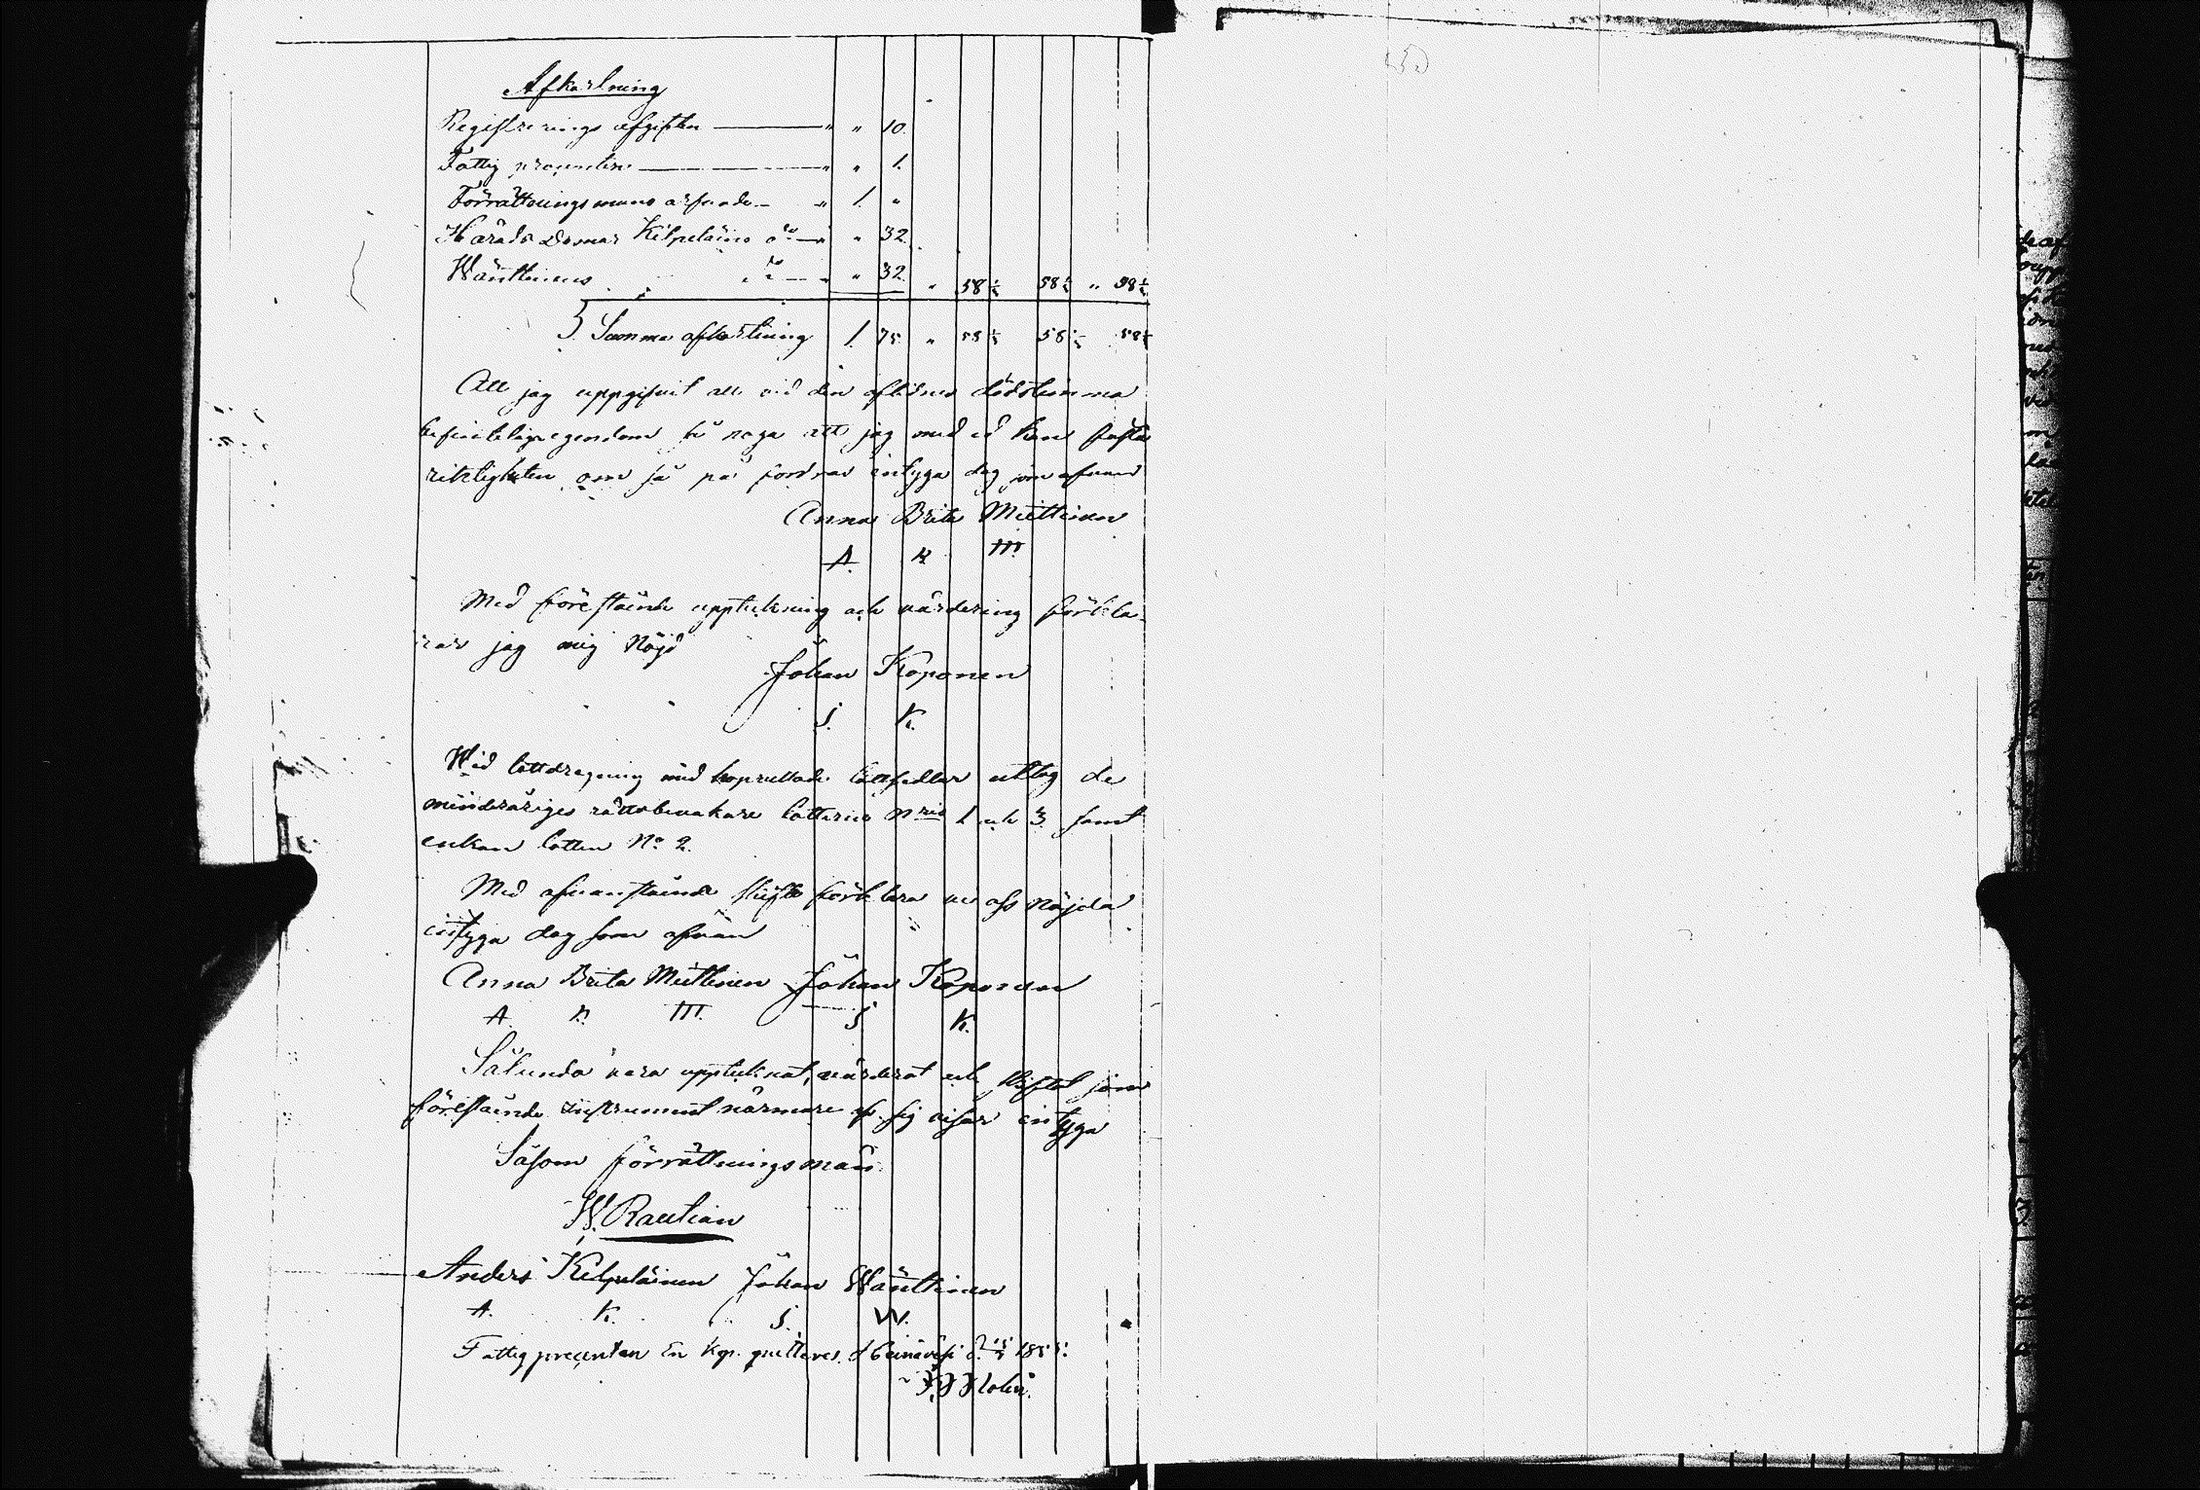 Afkortning
Registrerings afgiften — " " 10.
Fattig procenten — " " 1.
Förrättningsmans arfvode — " 1. "
Härads Domar Kilpeläins do — " " 32.
Wänttinens do — " " 32. " 58½ 58½ " 58½
Summa afkortning 1. 75. " 58½ 58½ 58½
Att jag uppgifvit all vid den aflidnes dödstimma
befintelig egendom så noga att jag med ed kan fästa
riktigheten om så på fordras intyga dag som ofvan
Anna Brita Miettinen
A. B. M.
Med föreståënde uppteckning och värdering förkla-
rar jag mig nöjd
Johan Koponen
J. K.
Wid lottdragning med hoprullade lottsedlar uttog de
minderåriges rättsbevakare lotterne Nris 1 och 3 samt
enkan lotten No 2.
Med ofvanstående skifte förklara vi oss nöjda
intyga dag som ofvan
Anna Brita Miettinen Johan Koponen
A. B. M. J. K.
Sålunda vara upptecknat, värderat och skiftat som
föreståënde instrument närmare af sig visar intyga
Såsom förrättningsmän.
W. Rautian
Anders Kilpeläinen Johan Wänttinen
A. K. J. W.
Fattigprocenten En kop. quitteras. d. 185